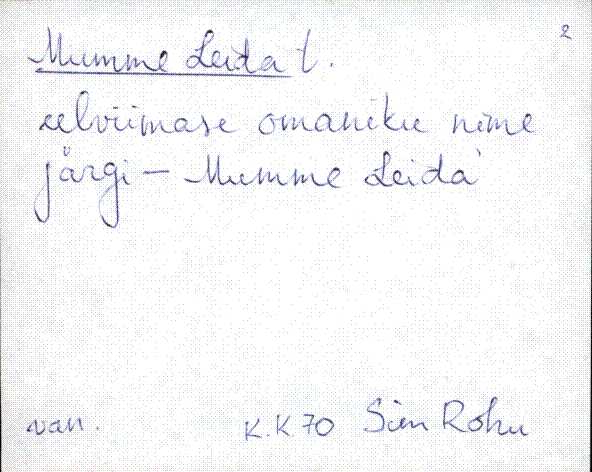 2
Mumme Leida t.
eelviimase omaniku nime
järgi – Mumme Leida`
van. K.K 70 Siim Rohu